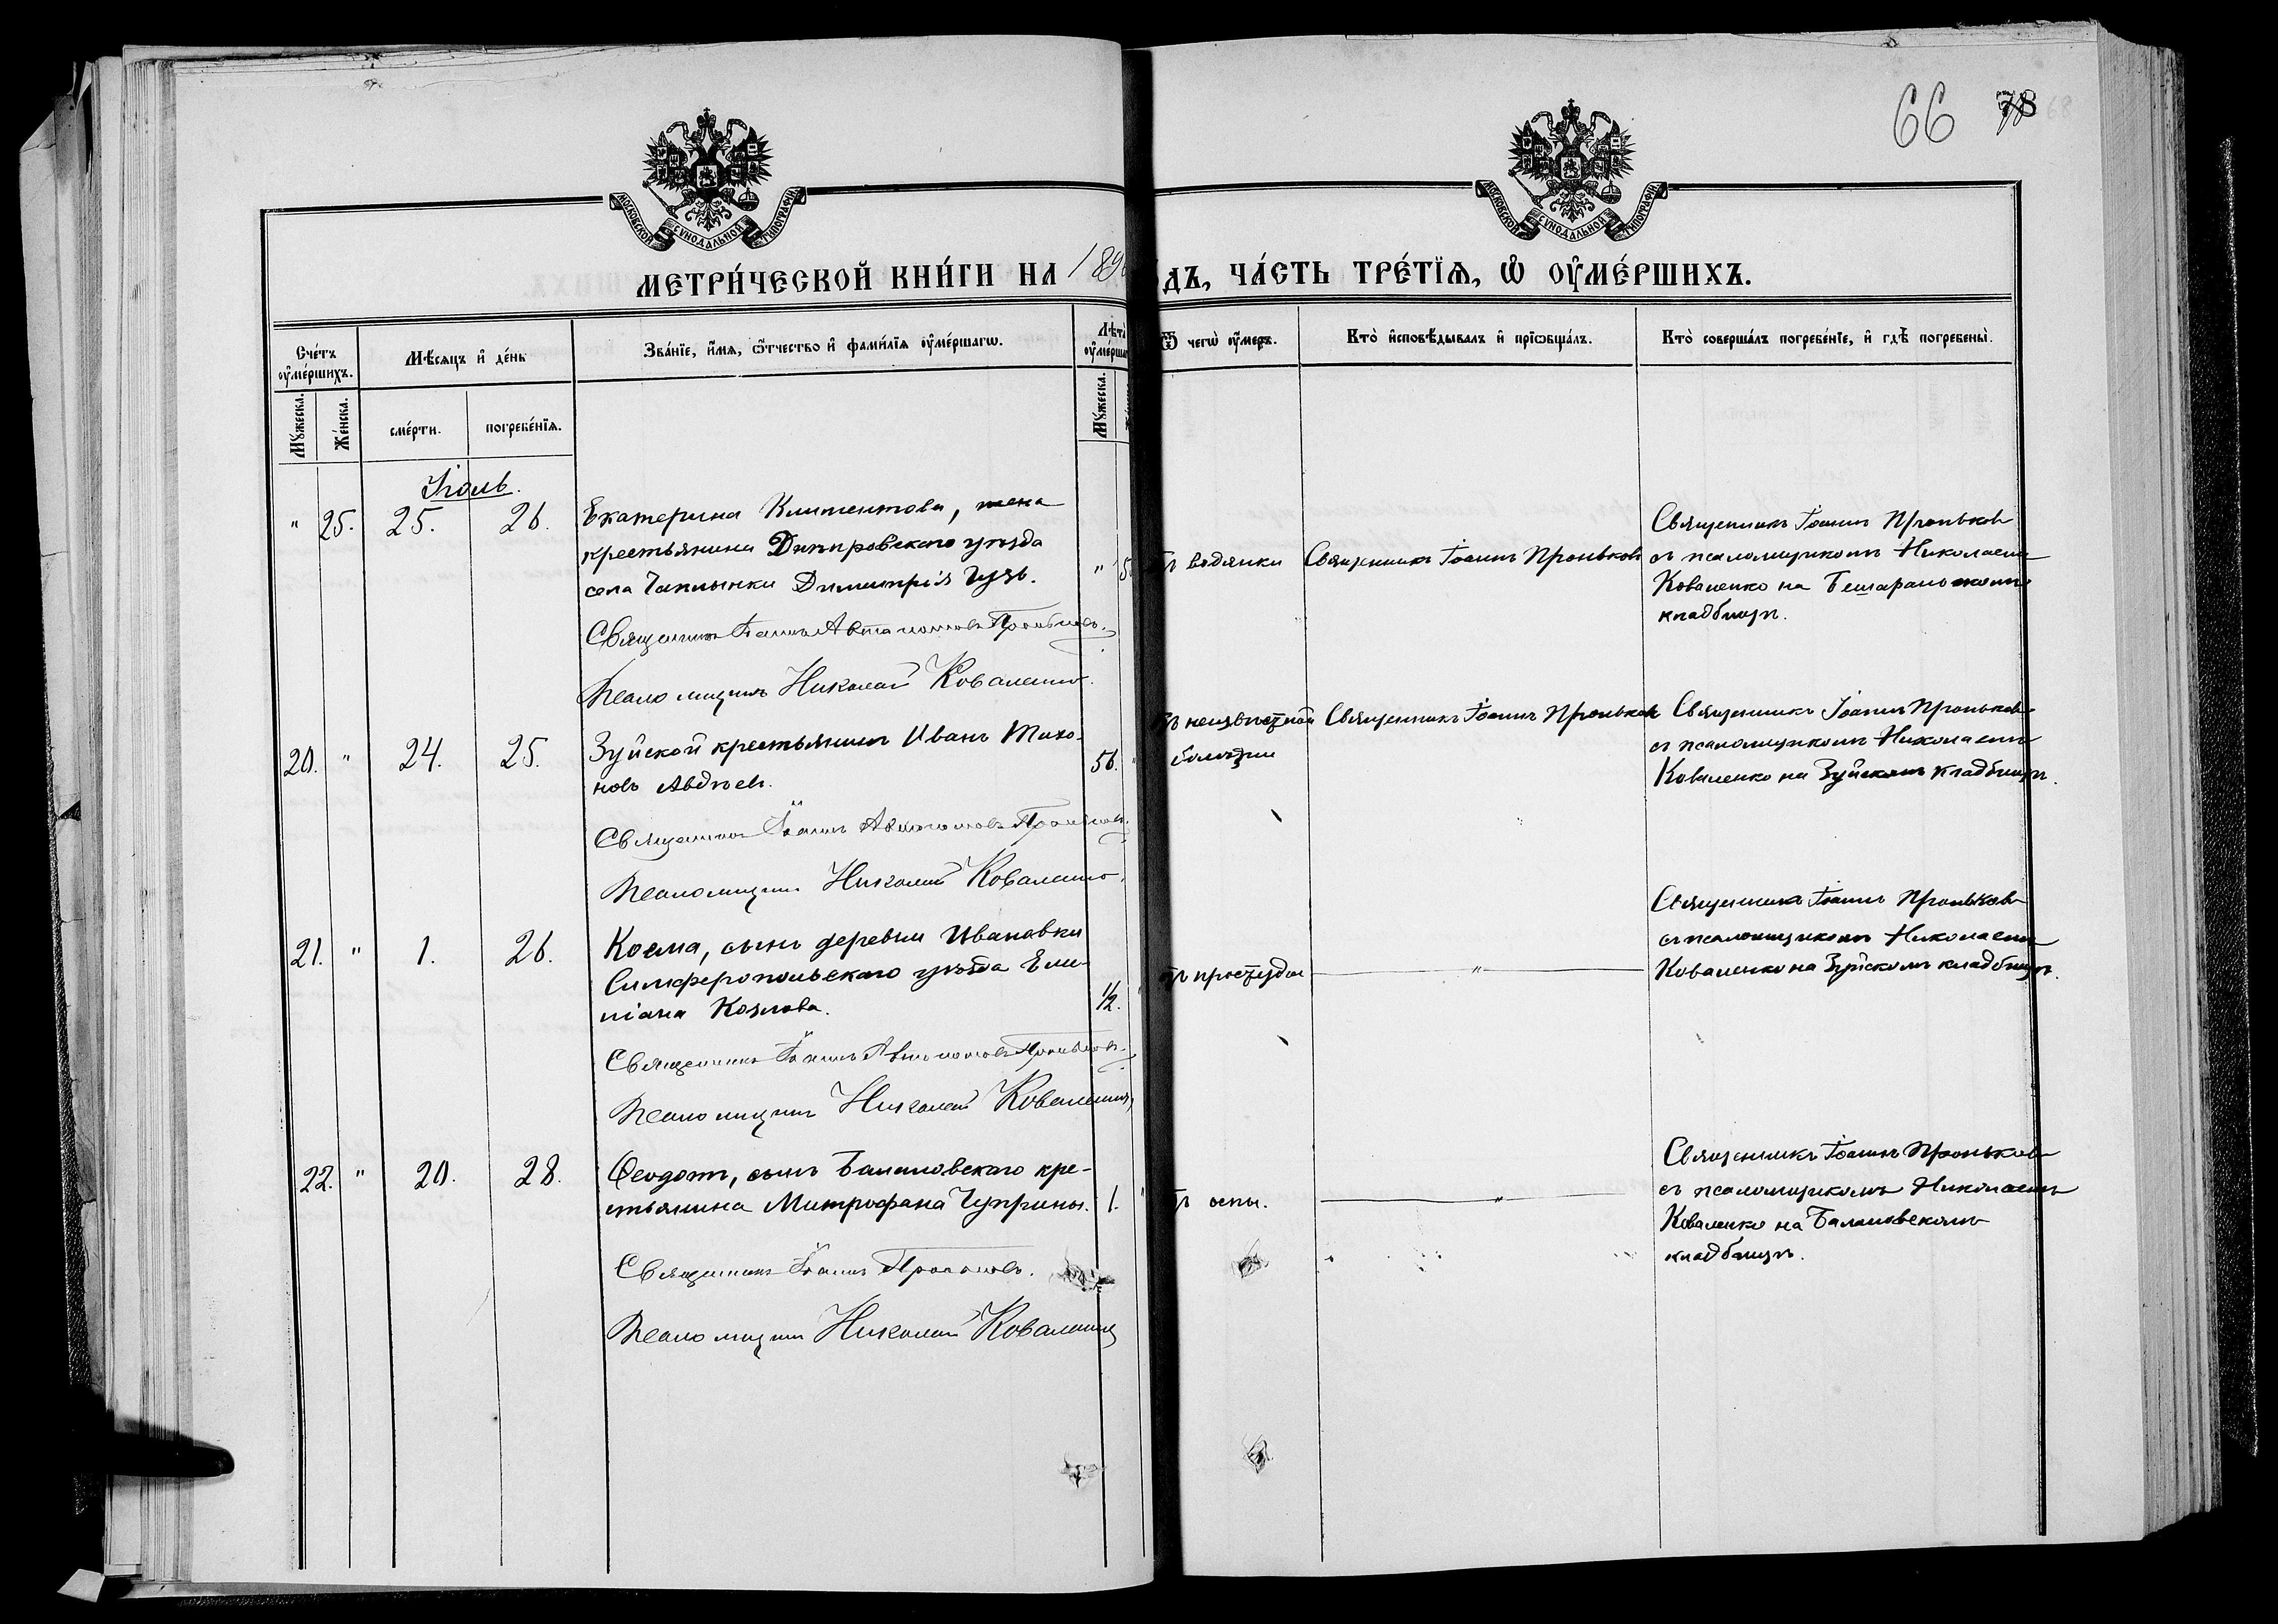 66 78 68
МОСКОВСКОЙ СУНОДАЛЬНОЙ ТИПОГРАФІИ
МОСКОВСКОЙ СУНОДАЛЬНОЙ ТИПОГРАФІИ
МЕТРИ́ЧЕСКОЙ КНИ́ГИ НА 189
ДЪ, ЧА́СТЬ ТРЕ́ТЇѦ, Ѡ҆ ОУ҆МЕ́РШИХЪ.
Сче́тъ оу҆ме́ршихъ.
Мѣ́сяцъ и҆ де́нь
Зва́нїе, и҆́мѧ, ѻ҆́тчество и҆ фами́лїѧ оу҆ме́ршагѡ.
Лѣта оу҆ме́рша
Ѿ чегѡ̀ оу҆́меръ.
Кто̀ и҆сповѣ́дывалъ и҆ прїѡбща́лъ.
Кто̀ соверша́лъ погребе́нїе, и҆ гдѣ̀ погребены̀.
Мꙋ́жеска.
Же́нска.
сме́рти.
погребе́нїѧ.
Мꙋ́жеска.
Іюль.
" 25. 25. 26. Екатерина Климентова, жена
крестьянина Днѣпровскаго уѣзда
села Чаплынки Димитрія Гузь. " 5
Священникъ Іоаннъ Автономовъ Проньковъ.
Псаломщикъ Николай Коваленко.
ъ водянки
Священникъ Іоаннъ Проньковъ
Священникъ Іоаннъ Проньковъ
съ псаломщикомъ Николаемъ
Коваленко на Бешаранскомъ
кладбищѣ.
20. " 24. 25. Зуйской крестьянинъ Иванъ Тихо-
новъ Авдѣевъ. 56.
Священникъ Іоаннъ Автономовъ Проньковъ.
Псаломщикъ Николай Коваленко.
ъ неизвѣстной
болѣзни
Священникъ Іоаннъ Проньковъ
Священникъ Іоаннъ Проньковъ
съ псаломщикомъ Николаемъ
Коваленко на Зуйскомъ кладбищѣ.
21. " 1. 26. Косма, сынъ деревни Ивановки
Симферопольскаго уѣзда Еми-
ліана Козлова. 1/2.
Священникъ Іоаннъ Автономовъ Проньковъ.
Псаломщикъ Николай Коваленко
тъ простуды
"
Священникъ Іоаннъ Проньковъ
съ псаломщикомъ Николаемъ
Коваленко на Зуйскомъ кладбищѣ.
22. " 20. 28. Ѳеодотъ, сынъ Балановскаго кре-
стьянина Митрофана Чуприны. 1.
Священникъ Іоаннъ Проньковъ.
Псаломщикъ Николай Коваленко
ъ оспы.
"
Священникъ Іоаннъ Проньковъ
съ псаломщикомъ Николаемъ
Коваленко на Балановскомъ
кладбищѣ.